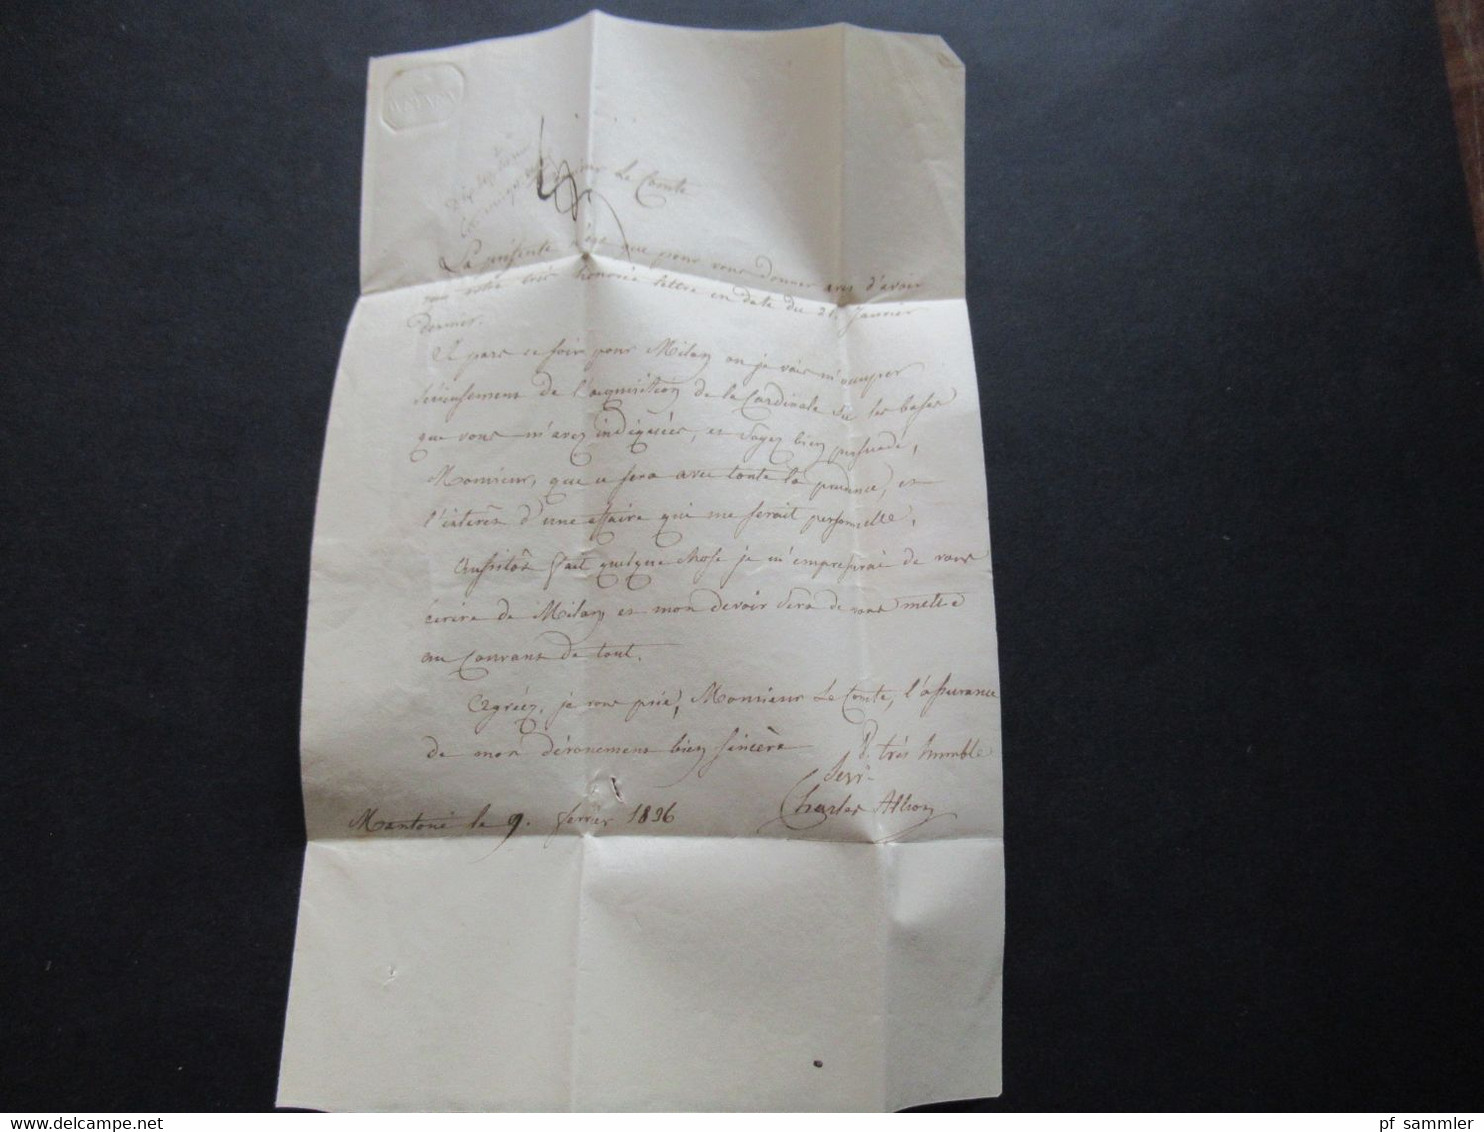 BATH
Monsieur Le Comte
La présente n'est que pour vous donner avis d'avoir
reçu votre très honorée lettre en date du 21 Janvier
dernier.
Je pars ce soir pour Milan où je vais m'occuper
sérieusement de l'acquisition de la Cardinale sur les bases
que vous m'avez indiquées, et soyez bien persuadé,
Monsieur, que ce sera avec toute la prudence, et
l'intérêt d'une affaire qui me serait personnelle.
Aussitôt fait quelque chose je m'empresserai de vous
écrire de Milan, et mon devoir sera de vous mettre
au courant de tout.
Agréez, je vous prie, Monsieur Le Comte, l'assurance
de mon dévouement bien sincère
V. très humble
Servr.
Mantoue le 9. février 1836
Charles
delcampe.net
pf sammler